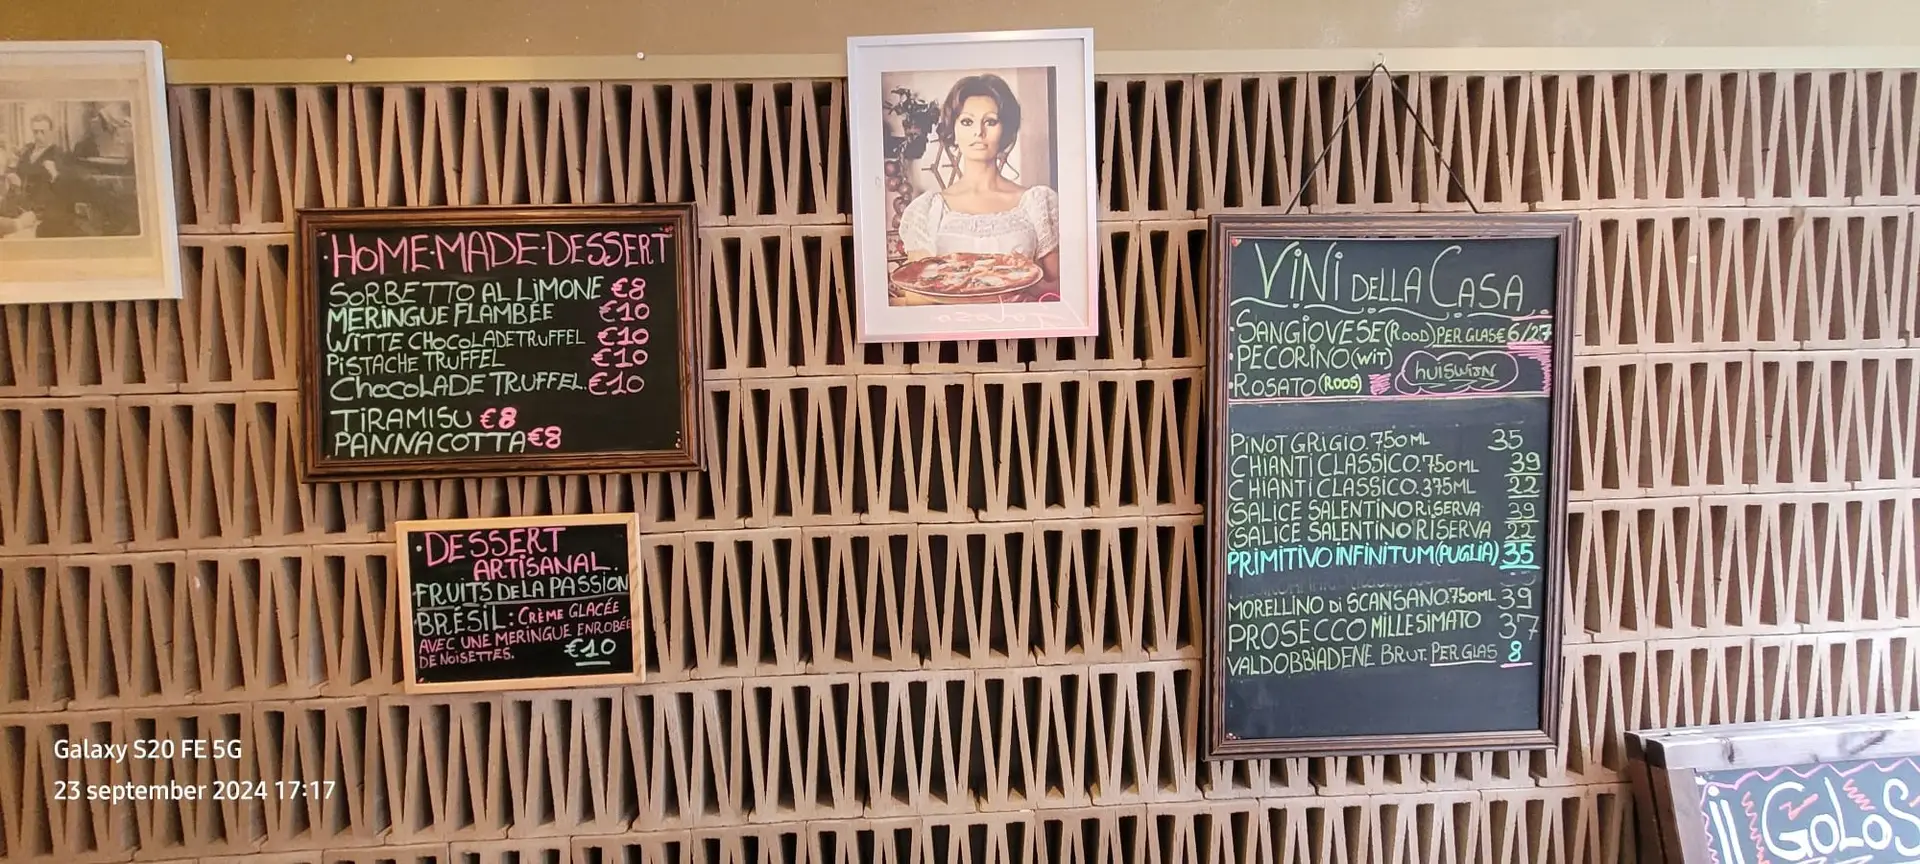 ·HOME·MADE·DESSERT
SORBETTO AL LIMONE €8
MERINGUE FLAMBÉE €10
WITTE CHOCOLADETRUFFEL €10
PISTACHE TRUFFEL €10
CHOCOLADE TRUFFEL. €10
TIRAMISU €8
PANNACOTTA €8
·DESSERT
ARTISANAL.
FRUITS DE LA PASSION
BRÉSIL: CRÈME GLACÉE
AVEC UNE MERINGUE ENROBÉE
DE NOISETTES. €10
VINI DELLA CASA
·SANGIOVESE (ROOD) PER GLAS € 6/27
·PECORINO (WIT) huiswijn
·ROSATO (ROOS)
PINOT GRIGIO. 750 ML 35
CHIANTI CLASSICO. 750 ML 39
CHIANTI CLASSICO. 375 ML 22
(SALICE SALENTINO RISERVA 39
(SALICE SALENTINO RISERVA 22
PRIMITIVO INFINITUM (PUGLIA) 35
MORELLINO di SCANSANO. 750 ML 39
PROSECCO MILLESIMATO 37
VALDOBBIADENE BRUT. PER GLAS 8
il GOLOS
Galaxy S20 FE 5G
23 september 2024 17:17